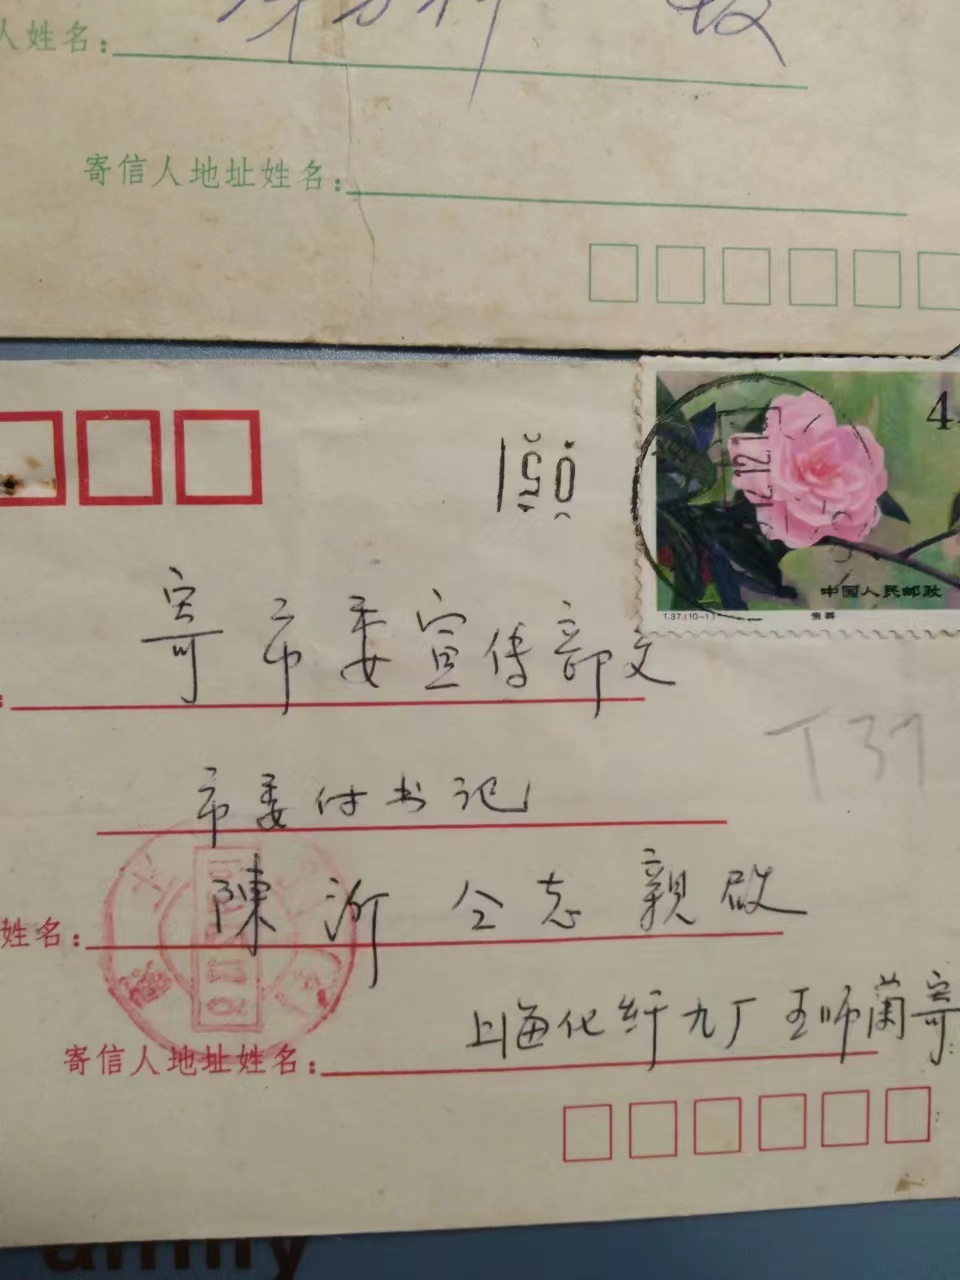 人姓名：
寄信人地址姓名：
150
4
中国人民邮政
T.37.(10-1)
寄市委宣传部文
T37
市委付书记
陳沂仝志親啟
姓名：
上海化纤九厂王师蘭寄
寄信人地址姓名：